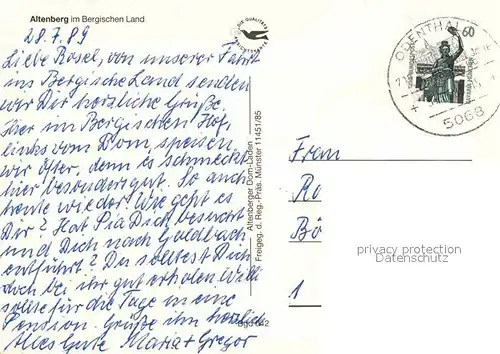 Altenberg im Bergischen Land
28.7.89
Liebe Rosel, von unserer Fahrt
ins Bergische Land senden
wir Dir herzliche Grüße.
Hier im Bergischen Hof,
links vom Dom, speisen
wir öfter, denn es schmeckt
hier besonders gut. So auch
heute wieder. Wie geht es
Dir? Hat Pia Dich besucht
und Dich nach Goldbach
entführt? Du solltest Dich
doch bei ihr gut erholen. Willi
sollte für die Tage in eine
Pension. Grüße ihn herzlich
Alles Gute Maria + Gregor
DIE QUALITÄTS
Altenberger Dom-Laden
Freigeg. d. Reg.-Präs. Münster 11451/85
ODENTHAL
5068
60
Frau
Ro
Bö
1
privacy protection
Datenschutz